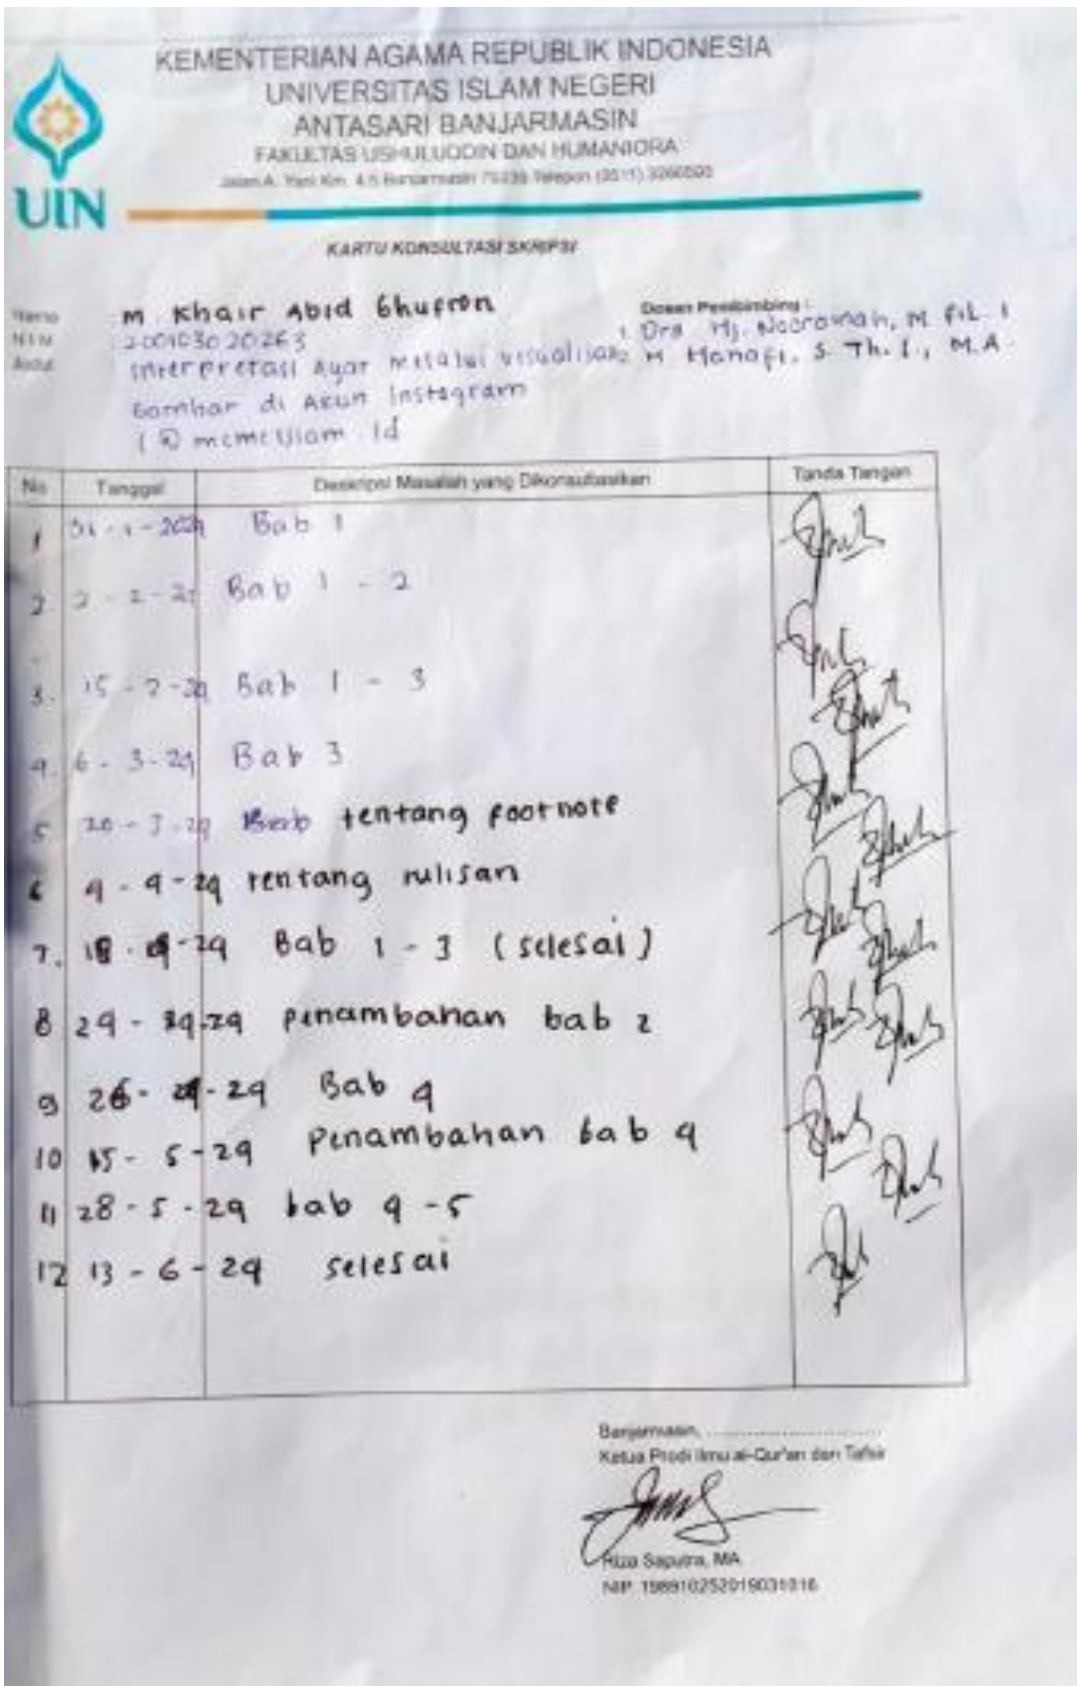 KEMENTERIAN AGAMA REPUBLIK INDONESIA
UNIVERSITAS ISLAM NEGERI
ANTASARI BANJARMASIN
FAKULTAS USHULUDDIN DAN HUMANIORA
Jalan A. Yani Km. 4.5 Banjarmasin Telepon (0511)
UIN
KARTU KONSULTASI SKRIPSI
Nama M. Khair Abid Ghufron
NIM 200103020263
Judul Interpretasi Ayat melalui visualisasi
Gambar di Akun Instagram
(@memeislam.id
Dosen Pembimbing :
1. Dra Hj. M. Fil. I
M Hanafi, S. Th. I., M.A.
No Tanggal Deskripsi Masalah yang Dikonsultasikan Tanda Tangan
1 Bab 1
2 Bab 1 - 2
3. 15 - 2 - 24 Bab 1 - 3
4. 6 - 3 - 24 Bab 3
5 20 - 3 - 24 tentang footnote
6 4 - 4 - 24 tentang tulisan
7. 18 - 4 - 24 Bab 1 - 3 (selesai)
8 24 - 24 penambahan bab 2
9 26 - 24 Bab 4
10 15 - 5 - 24 Penambahan bab 4
11 28 - 5 - 24 bab 4 - 5
12 13 - 6 - 24 selesai
Banjarmasin, ..............................
Ketua Prodi Ilmu al-Qur'an dan Tafsir
Riza Saputra, MA
NIP. 198910252019031016